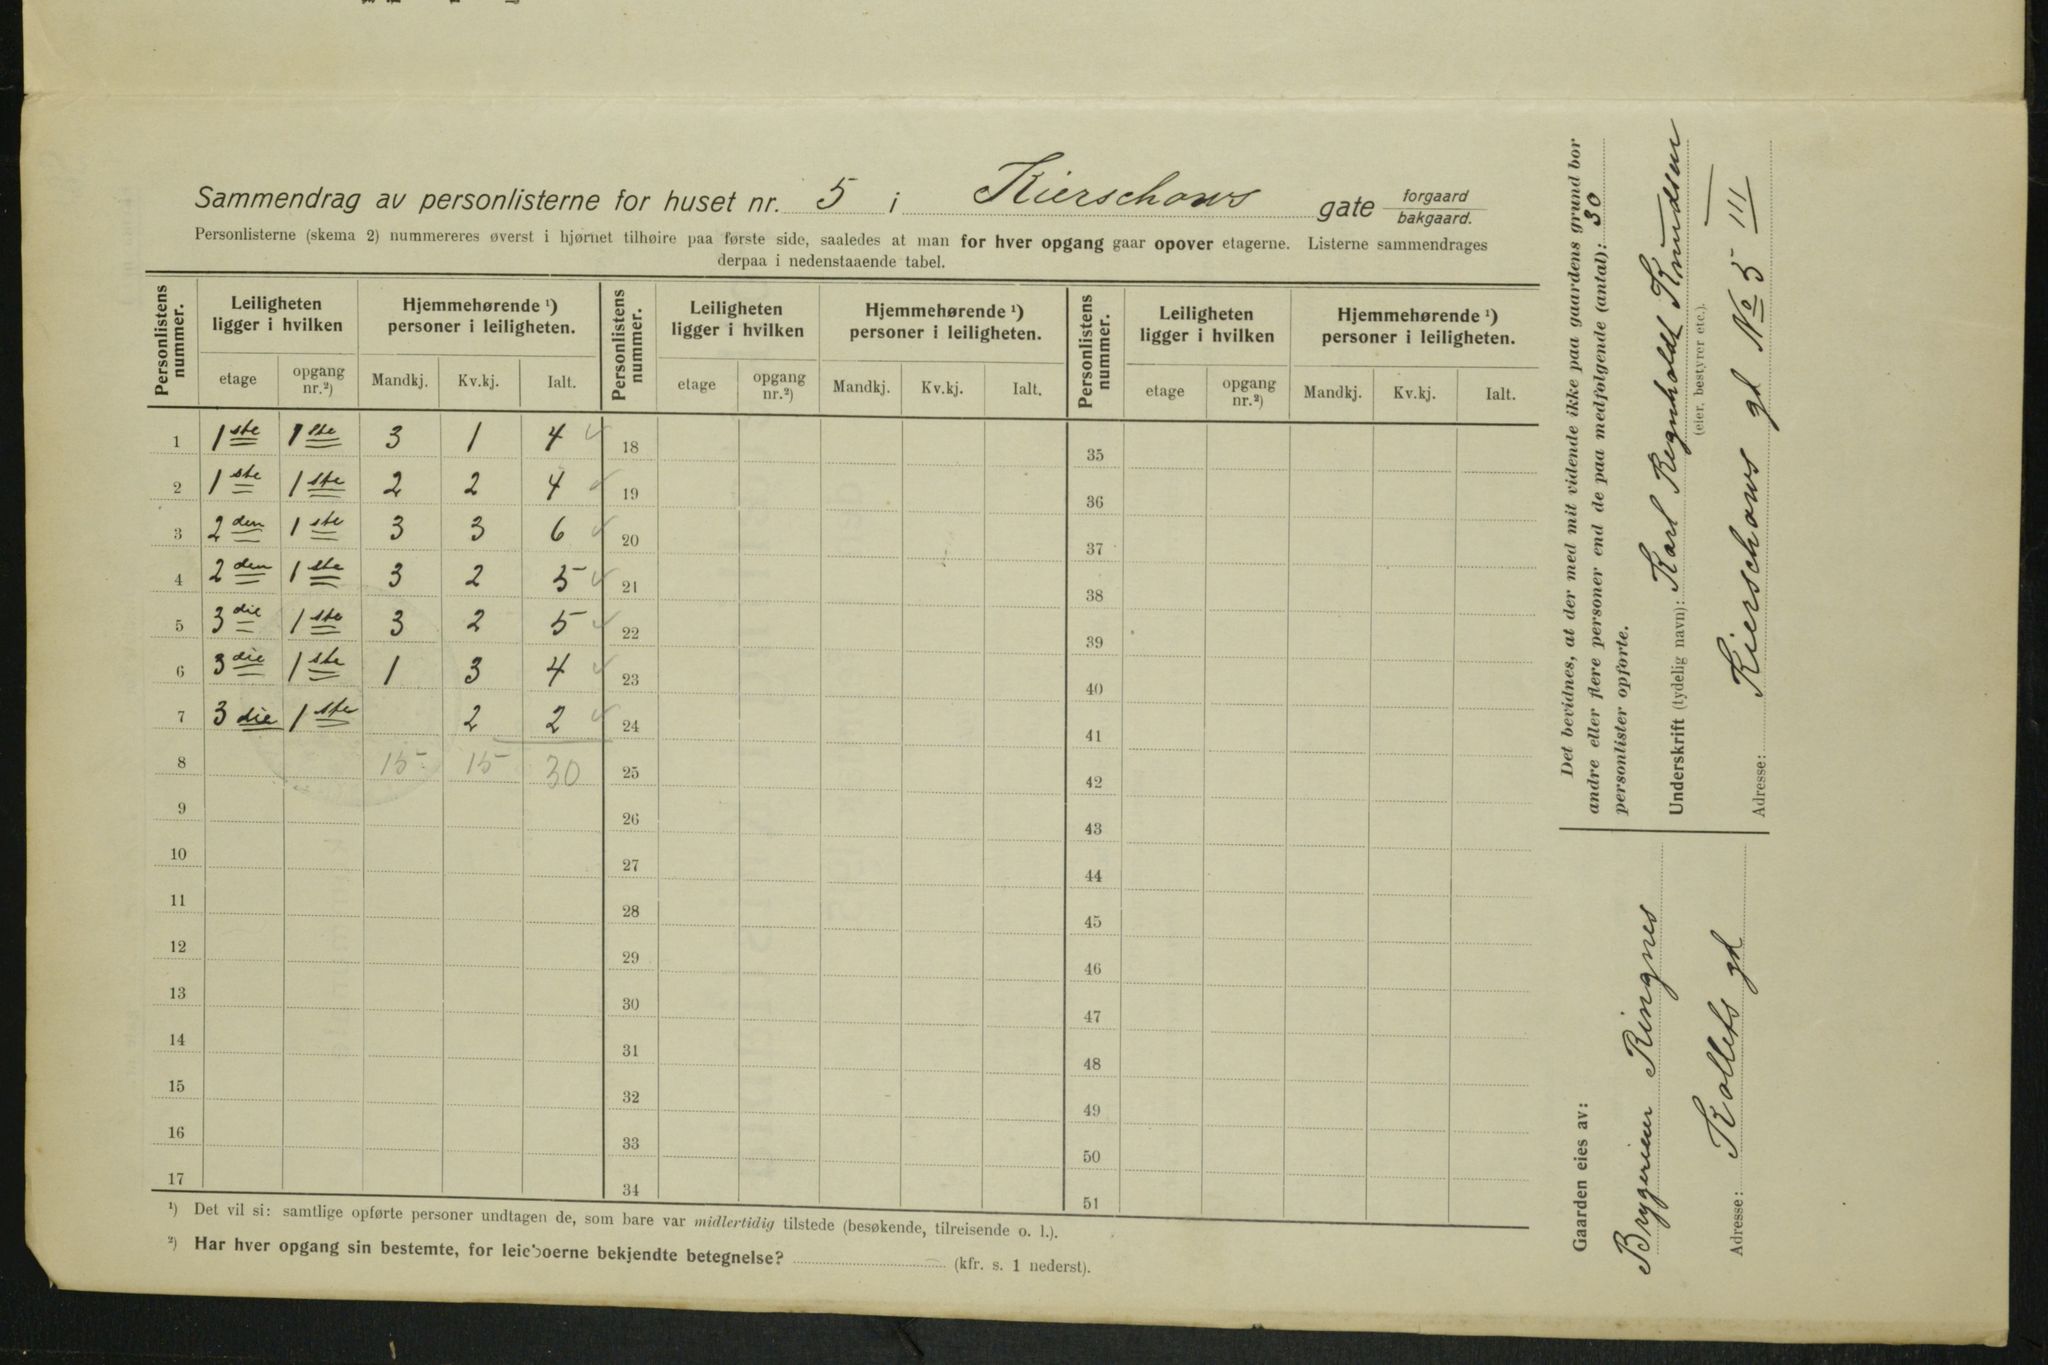 Sammendrag av personlisterne for huset nr. 5 i Kierschows gate forgaard bakgaard.
Personlisterne (skema 2) nummereres øverst i hjørnet tilhøire paa første side, saaledes at man for hver opgang gaar opover etagerne. Listerne sammendrages
derpaa i nedenstaaende tabel.
Personlistens nummer. Leiligheten ligger i hvilken Hjemmehørende ¹) personer i leiligheten. Personlistens nummer. Leiligheten ligger i hvilken Hjemmehørende ¹) personer i leiligheten. Personlistens nummer. Leiligheten ligger i hvilken Hjemmehørende ¹) personer i leiligheten.
etage opgang nr.²) Mandkj. Kv.kj. Ialt. etage opgang nr.²) Mandkj. Kv.kj. Ialt. etage opgang nr.²) Mandkj. Kv.kj. Ialt.
1 1ste 1ste 3 1 4 18 35
2 1ste 1ste 2 2 4 19 36
3 2den 1ste 3 3 6 20 37
4 2den 1ste 3 2 5 21 38
5 3die 1ste 3 2 5 22 39
6 3die 1ste 1 3 4 23 40
7 3die 1ste 2 2 24 41
8 15 15 30 25 42
9 26 43
10 27 44
11 28 45
12 29 46
13 30 47
14 31 48
15 32 49
16 33 50
17 34 51
¹) Det vil si: samtlige opførte personer undtagen de, som bare var midlertidig tilstede (besøkende, tilreisende o. l.).
²) Har hver opgang sin bestemte, for leieboerne bekjendte betegnelse? (kfr. s. 1 nederst).
Det bevidnes, at der med mit vidende ikke paa gaardens grund bor
andre eller flere personer end de paa medfølgende (antal): 30
personlister opførte.
Underskrift (tydelig navn): Karl Regnholdt Knudsen
(eier, bestyrer etc.).
Adresse: Kierschows gt No 5 III
Gaarden eies av:
Bryggerien Ringnes
Adresse: Kollets gt